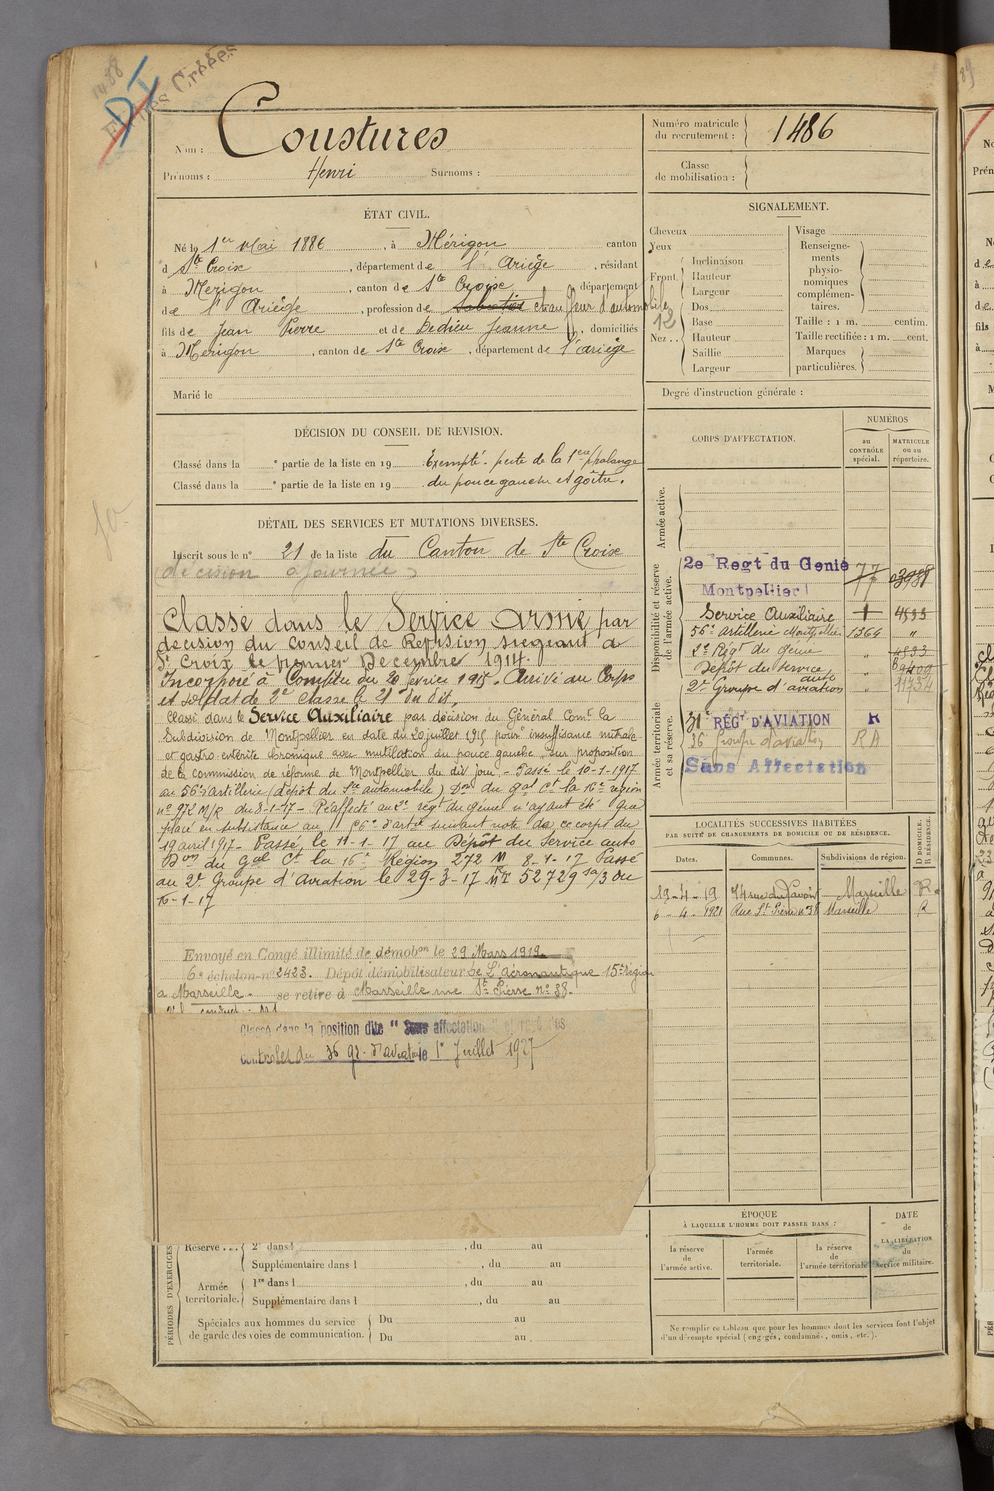 Nom : Coustures
Prénoms : Henri Surnoms :
Numéro matricule du recrutement : 1486
Classe de mobilisation :
ÉTAT CIVIL.
Né le 1er Mai 1886, à Mérigon canton
d Ste Croix, département de l'Ariège, résidant
à Merigon, canton de Ste Croix, département
de l'Ariège, profession de chauffeur d'automobile
fils de Jean Pierre et de Dedieu Jeanne, domiciliés
à Merigon, canton de Ste Croix, département de l'ariège
Marié le
SIGNALEMENT.
Cheveux
Yeux
Front. Inclinaison
Hauteur
Largeur
Nez . . Dos
Base
Hauteur
Saillie
Largeur
12
Visage
Renseignements physionomiques complémentaires.
Taille : 1 m. centim.
Taille rectifiée : 1 m. cent.
Marques particulières.
Degré d'instruction générale :
DÉCISION DU CONSEIL DE REVISION.
Classé dans la e partie de la liste en 19 Exempté - perte de la 1ère phalange
Classé dans la e partie de la liste en 19 du pouce gauche et goître.
DÉTAIL DES SERVICES ET MUTATIONS DIVERSES.
Inscrit sous le n° 21 de la liste du Canton de Ste Croix
(décision ajournée)
Classé dans le Service armé par
décision du Conseil de Révision siégeant à
St Croix le premier Décembre 1914.
Incorporé à Compter du 20 février 1915. Arrivé au Corps
et soldat de 2e classe le 21 du dit,
Classé dans le Service Auxiliaire par décision du Général Comt la
Subdivision de Montpellier en date du 20 juillet 1915 pour insuffisance mitrale
et gastro-entérite chronique avec mutilation du pouce gauche, sur proposition
de la commission de réforme de Montpellier du dit jour. - Passé le 10-1-1917
au 56e artillerie (dépôt du Sce automobile) Don du gal Ct la 16e région
n° 972 M/R du 8-1-17 - Réaffecté au 2e régt du génie n'ayant été que
placé en subsistance au 56e d'artie suivant note de ce corps du
19 avril 1917 - Passé, le 11-1-17 au Dépôt du Service auto
Don du gal Ct la 16e Région 272 M 8-1-17 Passé
au 2e Groupe d'Aviation le 29-3-17 52729 du
16-1-17
Envoyé en Congé illimité de démobon le 29 Mars 1919
6e échelon n° 2423. Dépôt démobilisateur de L'aéronautique 15e région
a Marseille. se retire à Marseille rue St Pierre n° 38.
Classé dans la position dite "Sans affectation"
contrôles du 36 gr. d'aviation le 1er Juillet 1927
CORPS D'AFFECTATION.
NUMÉROS
au CONTRÔLE spécial.
MATRICULE ou au répertoire.
Armée active.
Disponibilité et réserve de l'armée active.
2e Regt du Genie 77
Montpellier
Service Auxiliaire 4533
56e artillerie Montpellier 1366 "
2e Régt du génie " 4533
Dépôt du Service auto "
2e Groupe d'aviation "
Armée territoriale et sa réserve.
31e RÉGt D'AVIATION R
36 groupe d'aviation RA
Sans Affectation
LOCALITÉS SUCCESSIVES HABITÉES
PAR SUITE DE CHANGEMENTS DE DOMICILE OU DE RÉSIDENCE.
Dates. Communes. Subdivisions de région. D DOMICILE. R RÉSIDENCE.
19-4-19 74 rue du Pavoir Marseille R
6-4-1921 Rue St Pierre n° 38 Marseille R
ÉPOQUE
À LAQUELLE L'HOMME DOIT PASSER DANS :
la réserve de l'armée active.
l'armée territoriale.
la réserve de l'armée territoriale.
DATE de LA LIBÉRATION du service militaire.
Ne remplir ce tableau que pour les hommes dont les services font l'objet
d'un décompte spécial (engagés, condamnés, omis, etc.).
PÉRIODES D'EXERCICES
Réserve . . . 2e dans l , du au
Supplémentaire dans l , du au
Armée territoriale. 1re dans l , du au
Supplémentaire dans l , du au
Spéciales aux hommes du service Du au
de garde des voies de communication. Du au